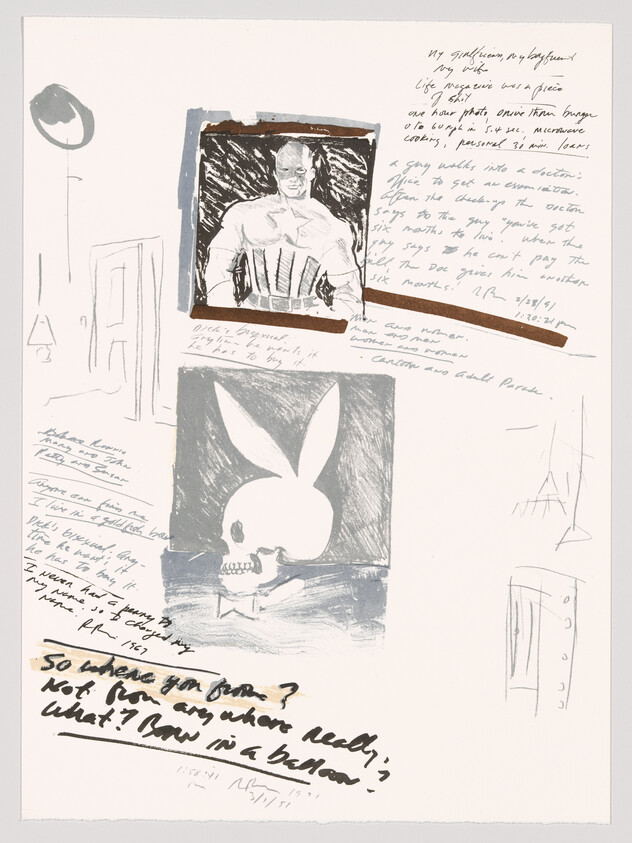 my girlfriend, my boyfriend
my wife
Life magazine was a piece
of shit
one hour photo drive thru burger
0 to 60 mph in 5.4 sec. microwave
cooking, personal 30 min. loans
a guy walks into a doctor's
office to get an examination.
After she check-up the Doctor
says to the guy "you've got
six months to live. When the
guy says he can't pay the
bill the Doc gives him another
six months!
1:20:21 pm
men and women.
men and men
women and women
- Cartoon and Adult Parade.
Dick's bisexual,
anytime he wants it
he has to buy it.
Mary and John
Patty and Susan
Anyone can find me
I live in a goldfish bowl
Dick's bisexual any-
time he wants it
he has to buy it
I never had a penny to
my name. so I changed my
name.
RP 1967
So where you from?
Not from anywhere really,
What? Born in a balloon?
1991